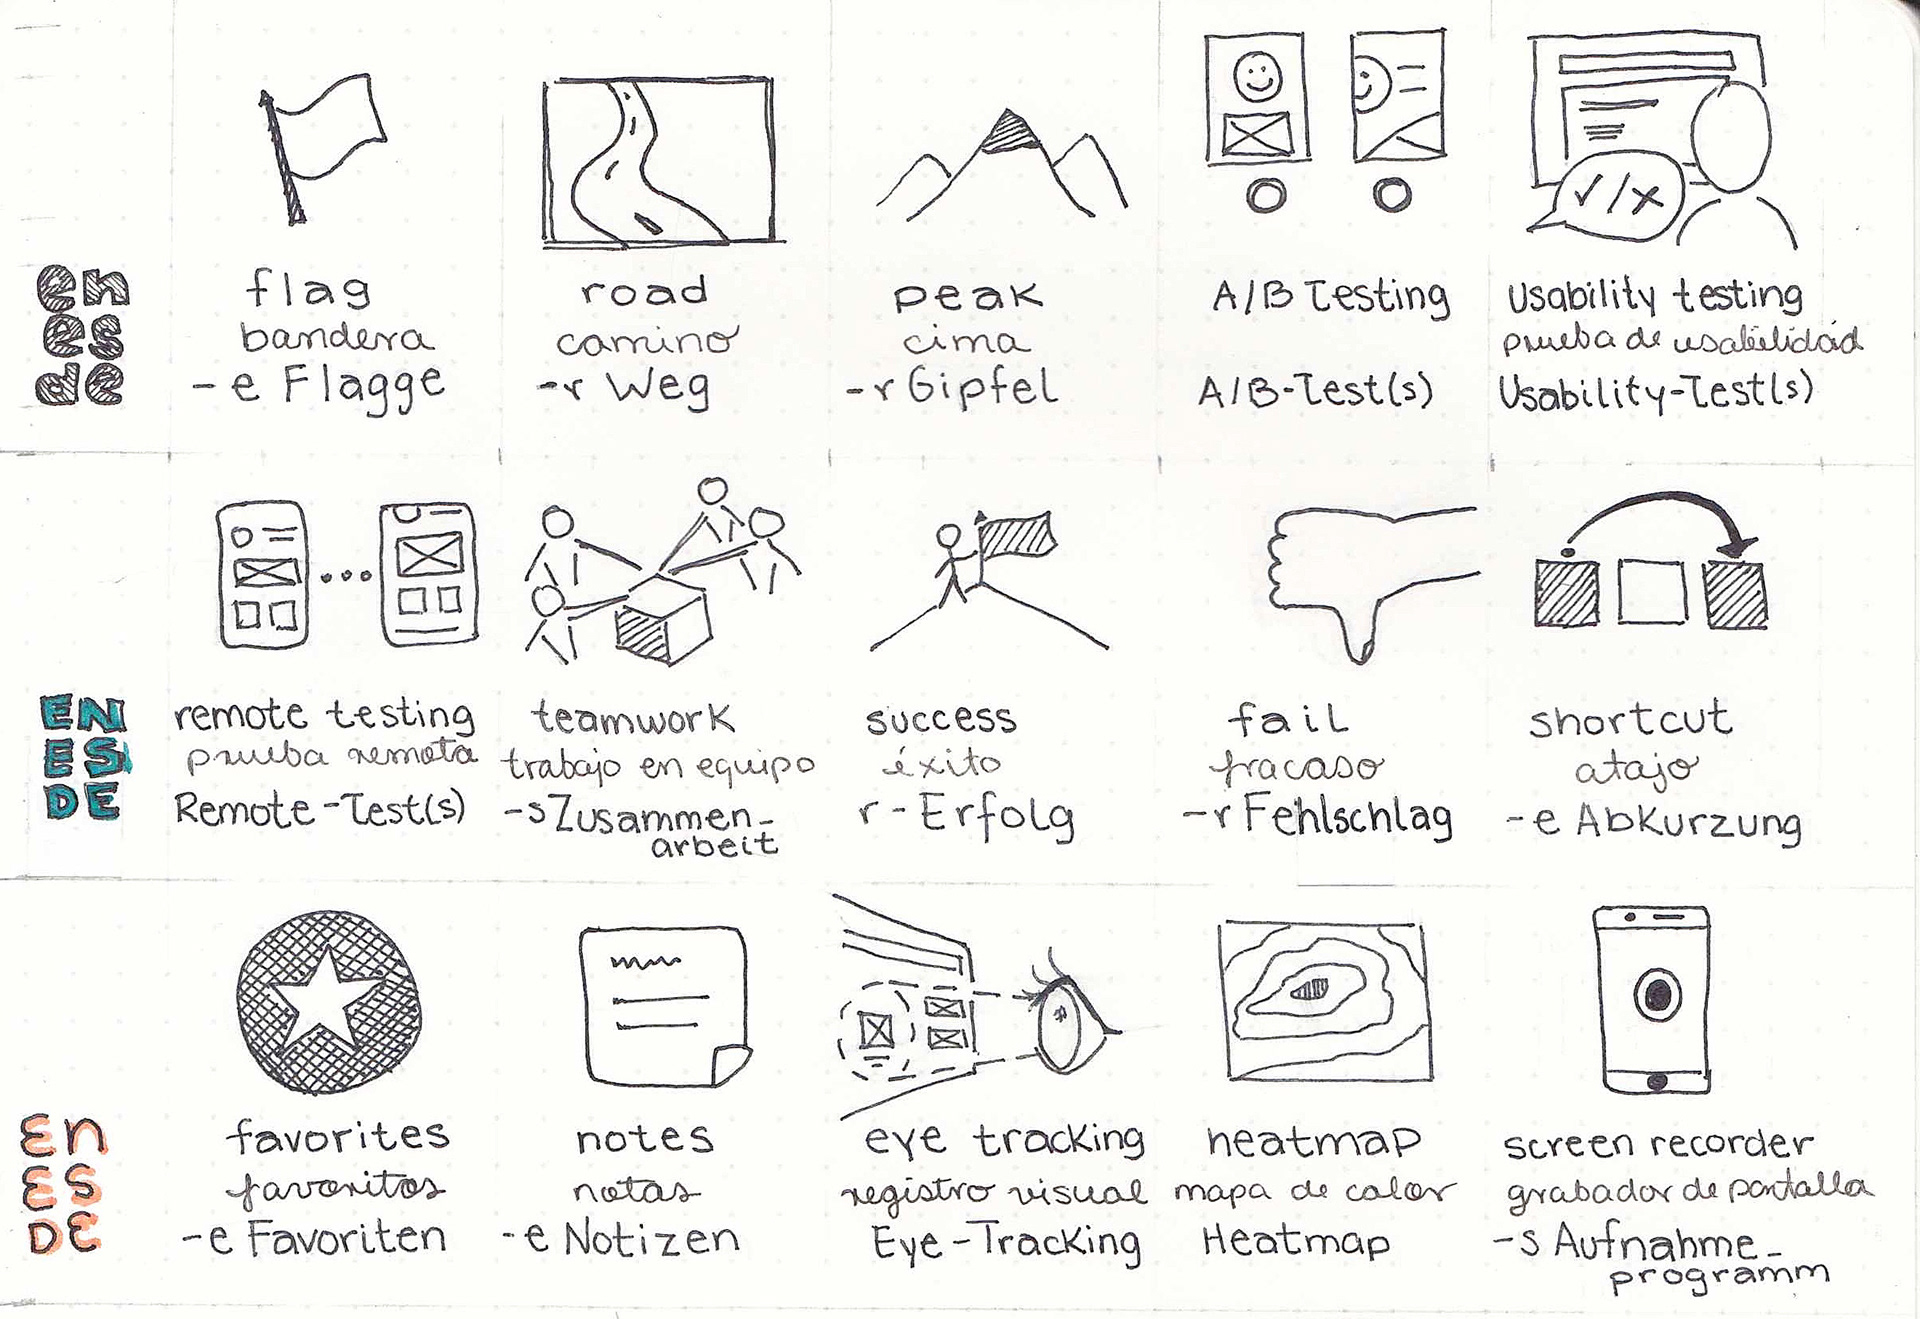 en
es
de
flag
bandera
-e Flagge
road
camino
-r Weg
peak
cima
-r Gipfel
A/B Testing
A/B-Test(s)
Usability testing
prueba de usabilidad
Usability-Test(s)
EN
ES
DE
remote testing
prueba remota
Remote-Test(s)
teamwork
trabajo en equipo
-s Zusammen-
arbeit
success
éxito
r-Erfolg
fail
fracaso
-r Fehlschlag
shortcut
atajo
-e Abkurzung
En
ES
DE
favorites
favoritos
-e Favoriten
notes
notas
-e Notizen
eye tracking
registro visual
Eye-Tracking
heatmap
mapa de calor
Heatmap
screen recorder
grabador de pantalla
-s Aufnahme-
programm